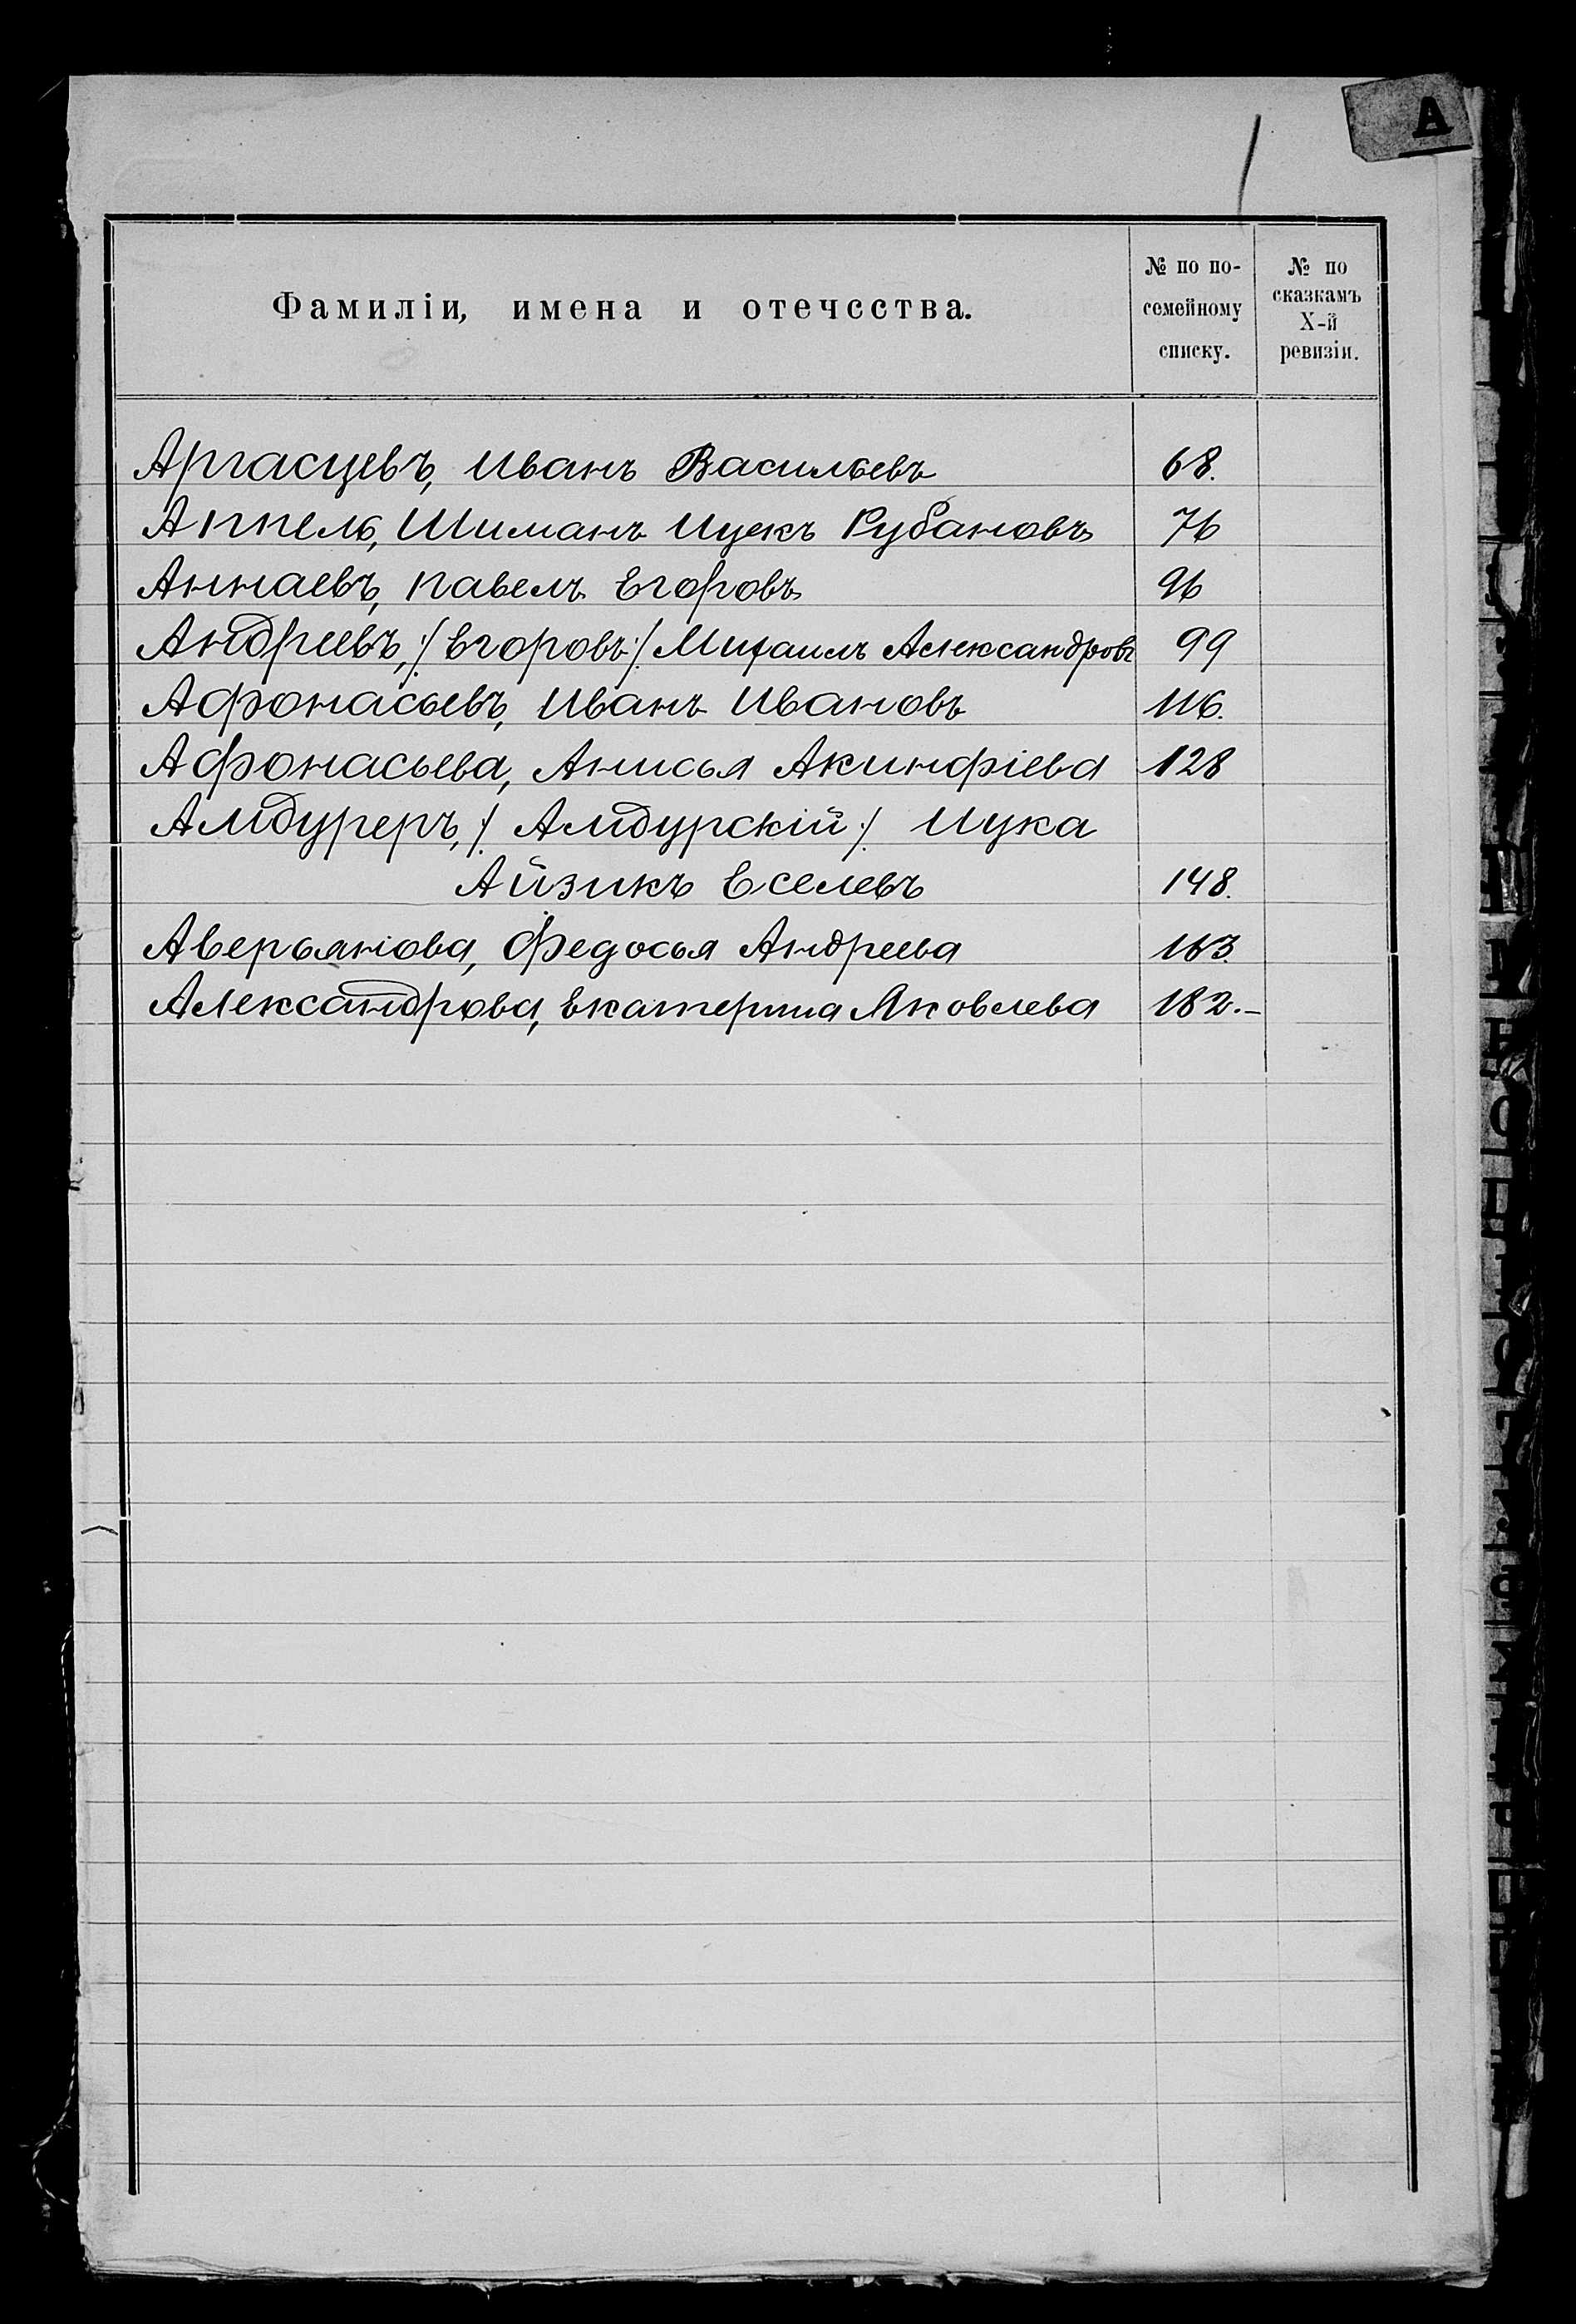 А
Фамиліи, имена и отечсства.
№ по по-
семейному
списку.
№ по
сказкамъ
X-й
ревизіи.
Аргасцевъ, Иванъ Васильевъ 68.
Аппель, Шиманъ Ицекъ Рубановъ 76
Аннаевъ, Павелъ Егоровъ 96
Андреевъ, /: Егоровъ :/ Михаилъ Александровъ 99
Афонасьевъ, Иванъ Ивановъ 116.
Афонасьева, Анисья Акинфіева 128
Амдуреръ, /: Амдурскій :/ Ицка
Айзикъ Еселевъ 148.
Аверьянова, Федосья Андреева 163.
Александрова, Екатерина Яковлева 182.-